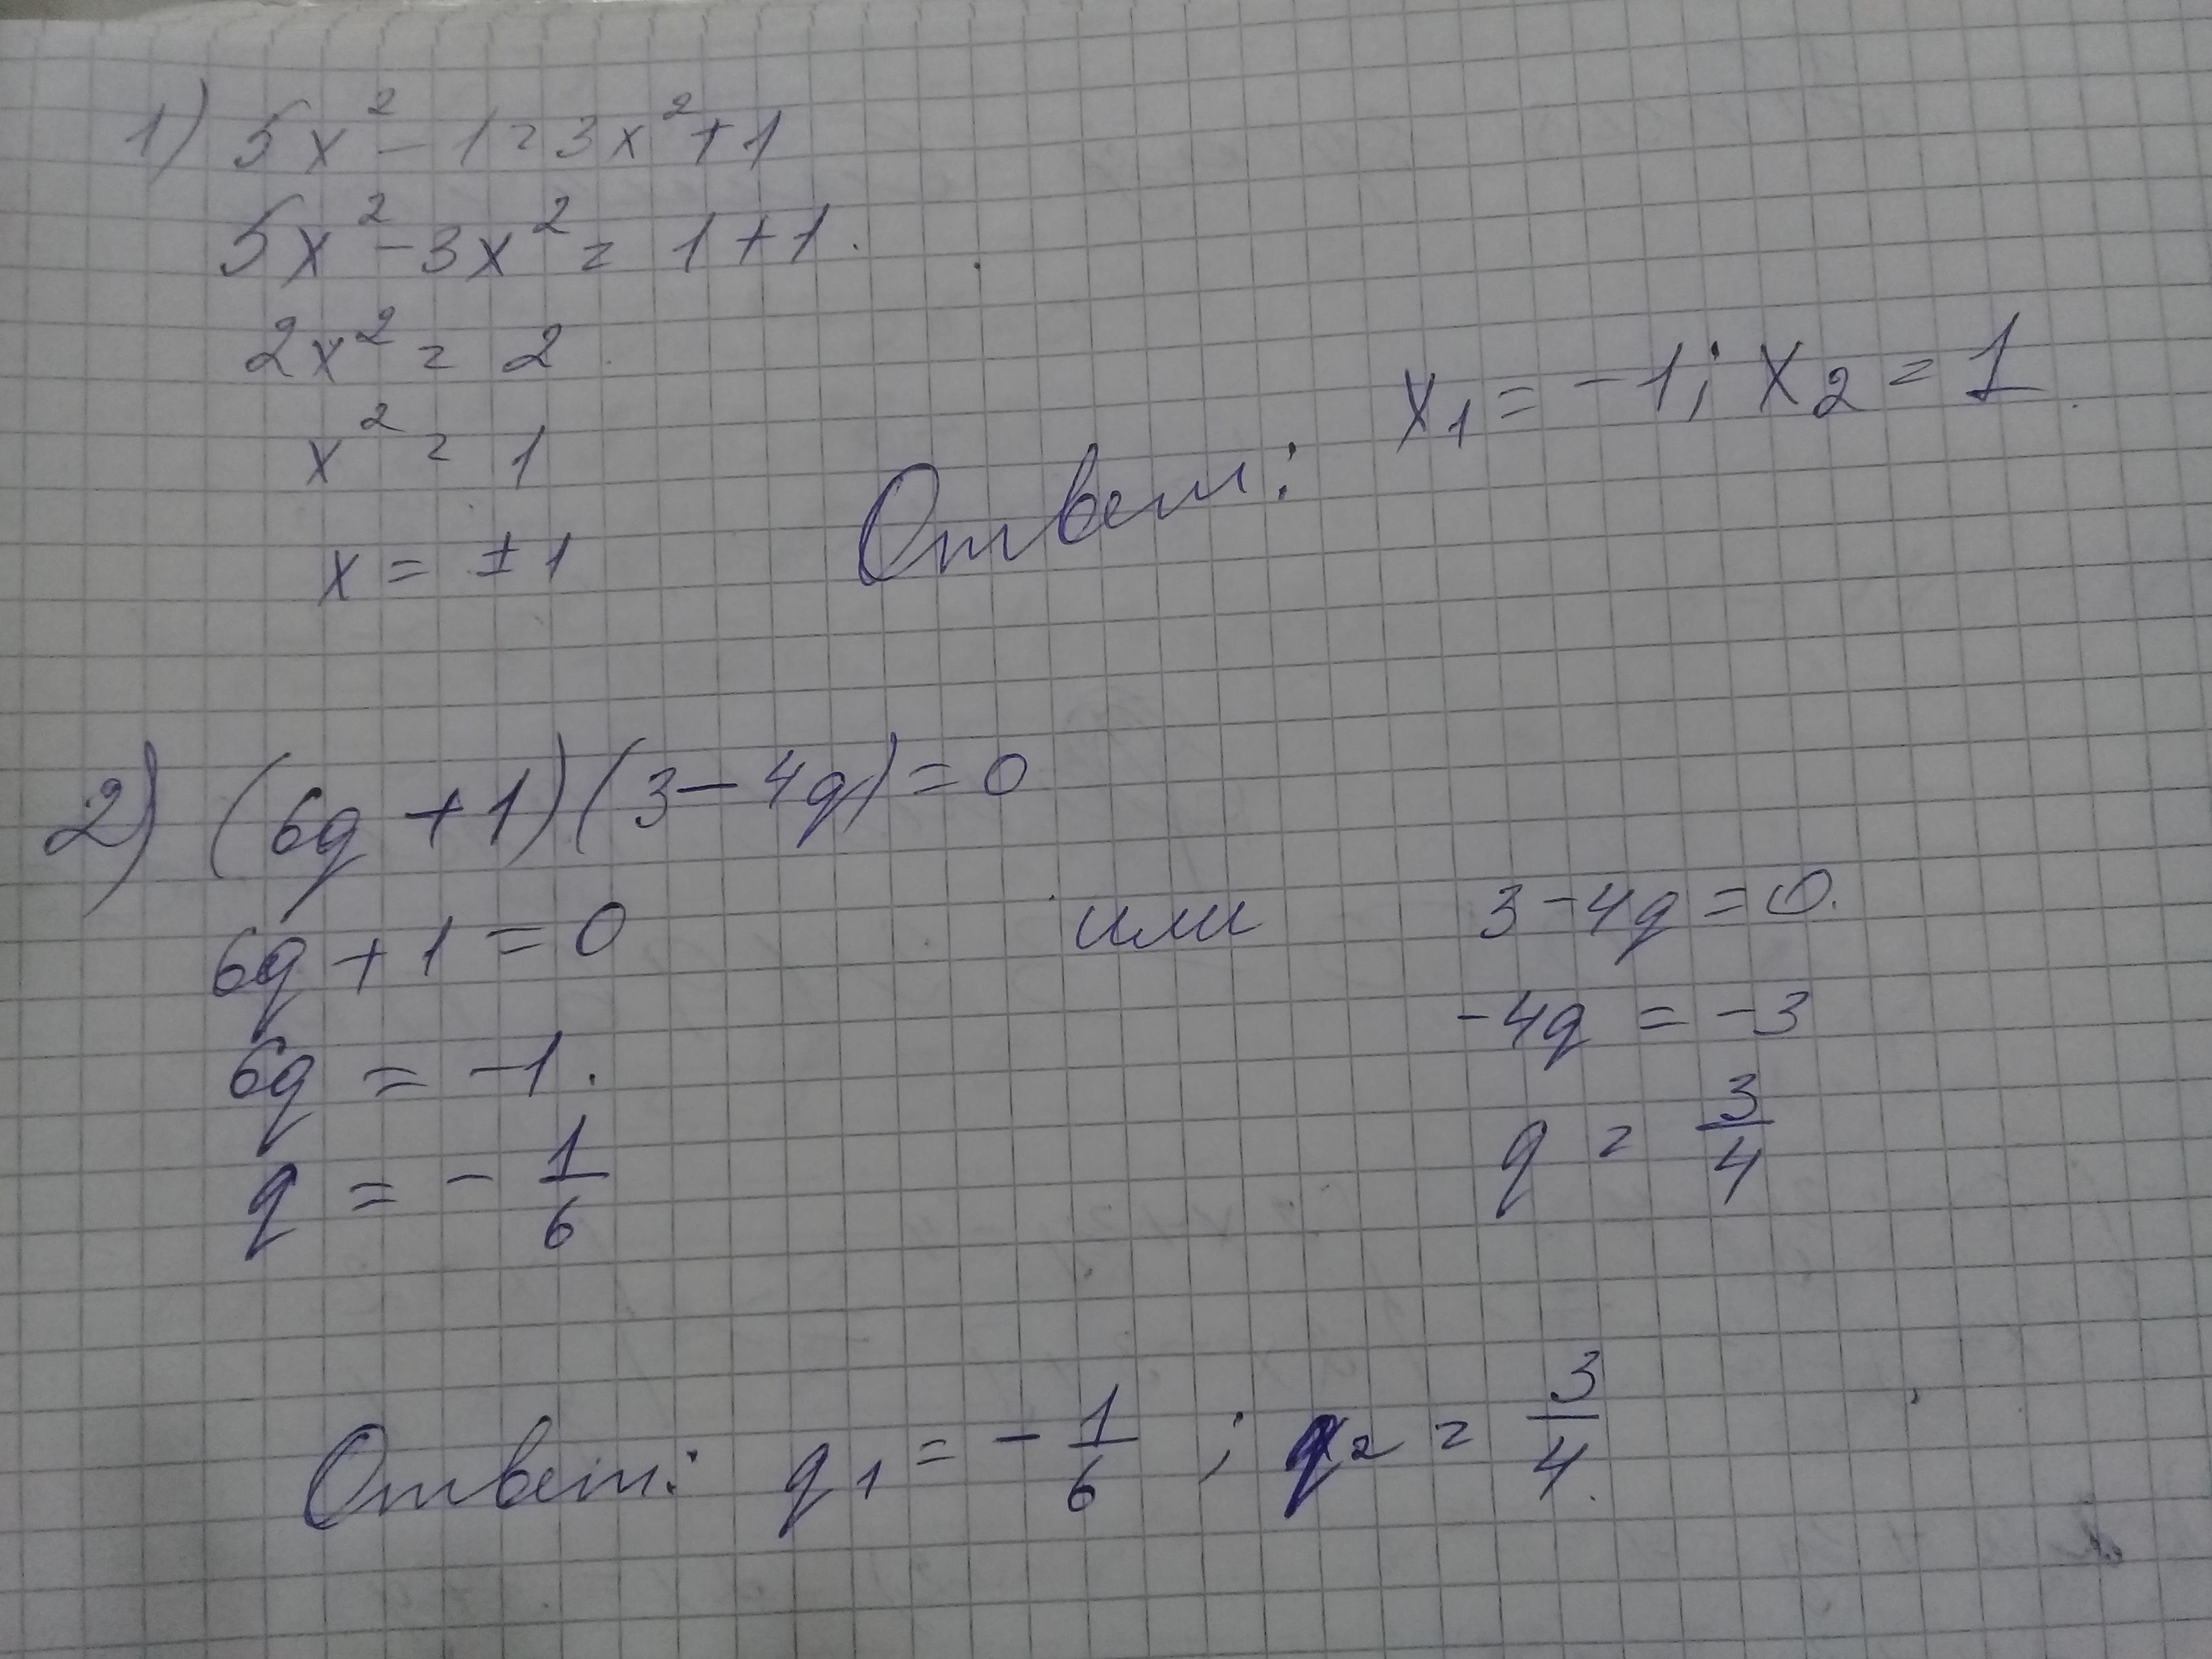 1) 5x² - 1 = 3x² + 1
5x² - 3x² = 1 + 1.
2x² = 2
x² = 1
x = ± 1
Ответ: x₁ = -1; x₂ = 1
2) (6q + 1)(3 - 4q) = 0
6q + 1 = 0 или 3 - 4q = 0.
6q = -1. -4q = -3
q = - 1/6 q = 3/4
Ответ: q₁ = - 1/6 ; q₂ = 3/4.